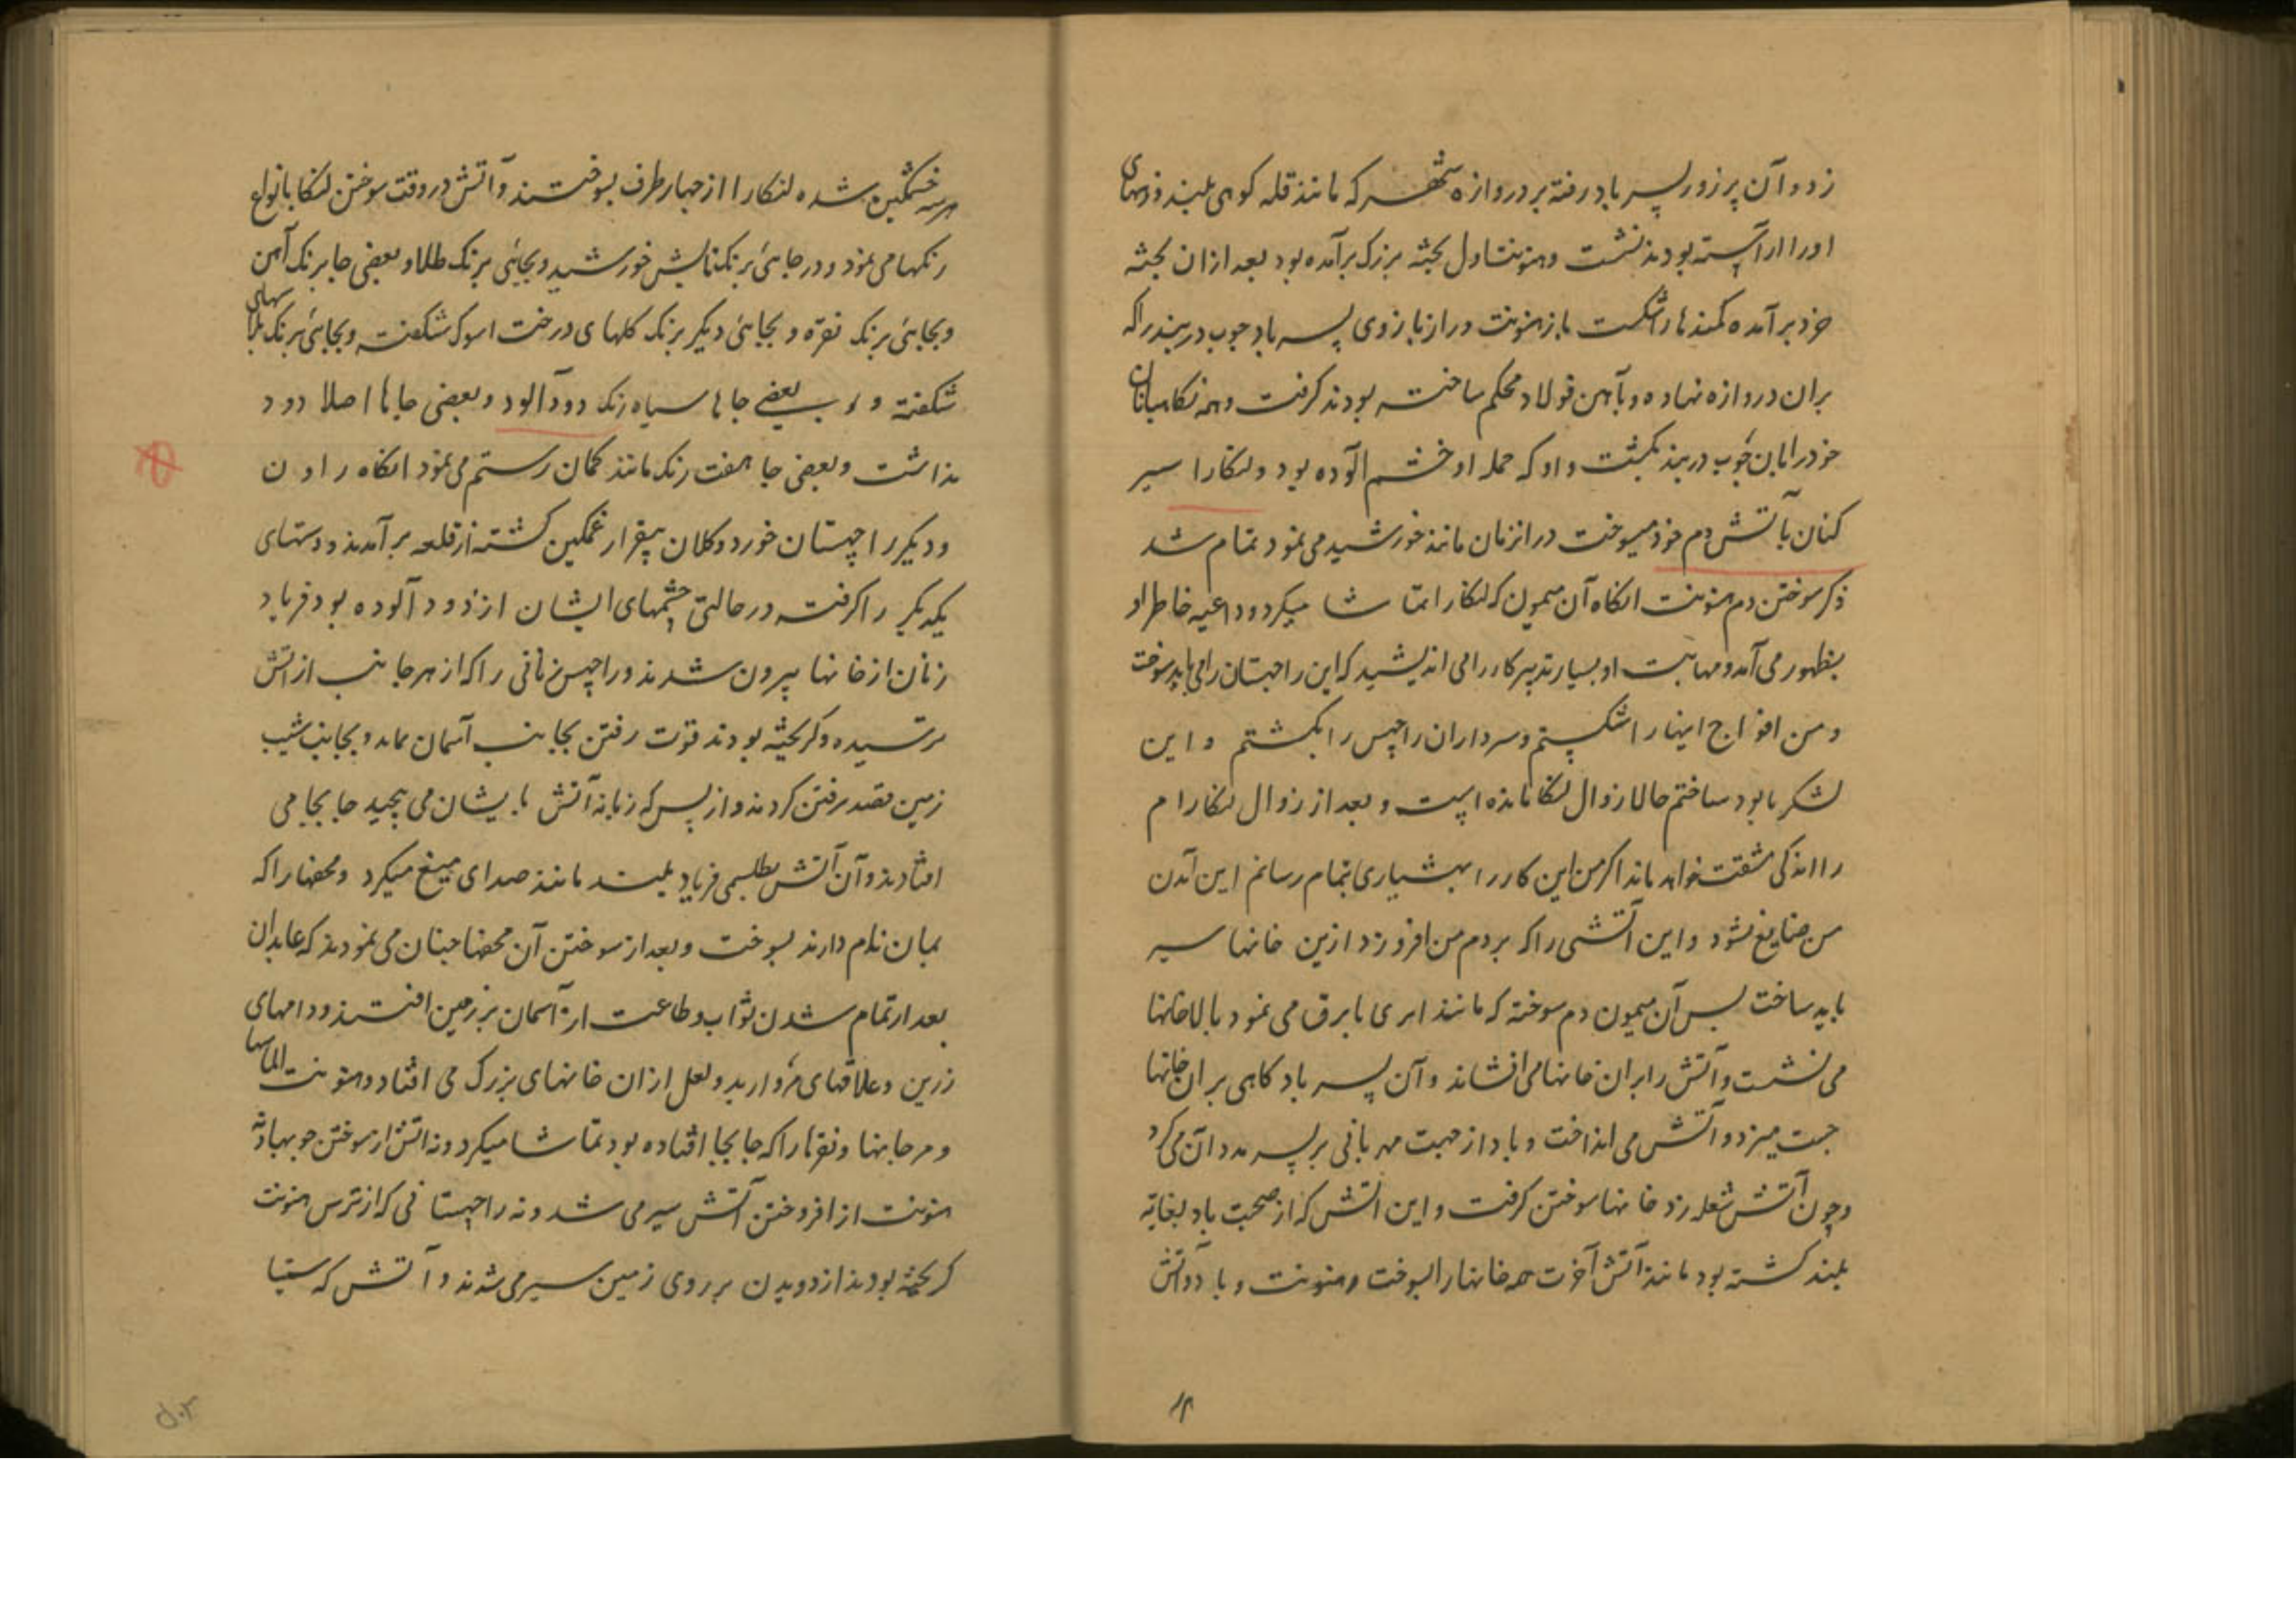 زد و آن پرزور پسر باد رفته بر دروازه شهر که مانند قله کوهی بلند و
او را آراسته بودند نشست و هنونت اول بجثه بزرک برآمده بود بعد ازان بجثه
خرد برآمده کمندها را شکست باز هنونت دراز بازوی پسر باد چوب دربند را که
بران دروازه نهاده و بآهن فولاد محکم ساخته بودند کرفت و همه نکاهبانان
خود را بان چوب دربند بکشت و او که حمله او خشم آلوده بود و لنکا را سیر
کنان بآتش دم خود میسوخت درانزمان مانند خورشید می نمود تمام شد
ذکر سوختن دم هنونت انکاه آن میمون که لنکا را تماشا میکرد و داعیه خاطر او
بظهور می آمد و مهابت او بسیار تدبیر کار را می اندیشید که این راچهستان را می باید سوخت
و من افواج اینها را شکستم و سرداران راچهس را بکشتم و این
لشکر نابود ساختم حالا زوال لنکا مانده است و بعد از زوال لنکا رام
را اندکی مشقت خواهد ماند اکر من این کار را بهشیاری بتمام رسانم این آمدن
من ضایع نشود و این آتشی را که بر دم من افروزد ازین خانها سیر
باید ساخت پس آن میمون دم سوخته که مانند ابری با برق می نمود بالا خانها
می نشست و آتش را بران خانها می افشاند و آن پسر باد کاهی بران خانها
جست میزد و آتش می انداخت و باد از جهت مهربانی بر پسر مدد آن می کرد
و چون آتش شعله زد خانها سوختن کرفت و این آتش که از صحبت باد بغایة
بلند کشته بود مانند آتش آخرت همه خانها را بسوخت و هنونت و باد و آتش
هرسه خشمکین شده لنکا را از چهار طرف بسوختند و آتش در وقت سوختن لنکا بانواع
رنکها می نمود و در جائی برنک تابش خورشید و بجائی برنک طلا و بعضی جا برنک آهن
و بجائی برنک نقره و بجائی دیکر برنک کلهای درخت اسوک شکفته و بجائی برنک
شکفته و بعضی جاها سیاه رنک دود آلود و بعضی جاها اصلا دود
نداشت و بعضی جا هفت رنک مانند کمان رستم می نمود انکاه راون
و دیکر راچهستان خورد و کلان بیقرار غمکین کشته از قلعه برآمدند و دستهای
یکدیکر را کرفته در حالتی چشمهای ایشان از دود آلوده بود فریاد
زنان از خانها بیرون شدند و راچهس زنانی را که از هر جانب از آتش
ترسیده و کریخته بودند قوت رفتن بجانب آسمان نماند و بجانب شیب
زمین قصد رفتن کردند و از بس که زبانه آتش بایشان می پیچید جا بجا می
افتادند و آن آتش فریاد بلند مانند صدای میغ میکرد و محضها را که
بمان نام دارند بسوخت و بعد از سوختن آن محضها چنان می نمودند که عابدان
بعد از تمام شدن ثواب و طاعت از آسمان بر زمین افتند و دامهای
زرین و علاقهای مروارید و لعل ازان خانهای بزرک می افتاد و هنونت الماسها
و مرجانها و نقرها را که جابجا افتاده بود تماشا میکرد و نه آتش از سوختن چوبها و نه
هنونت از افروختن آتش سیر می شد و نه راچهستانی که از ترس هنونت
کریخته بودند از دویدن بر روی زمین سیر می شدند و آتش که سیتا